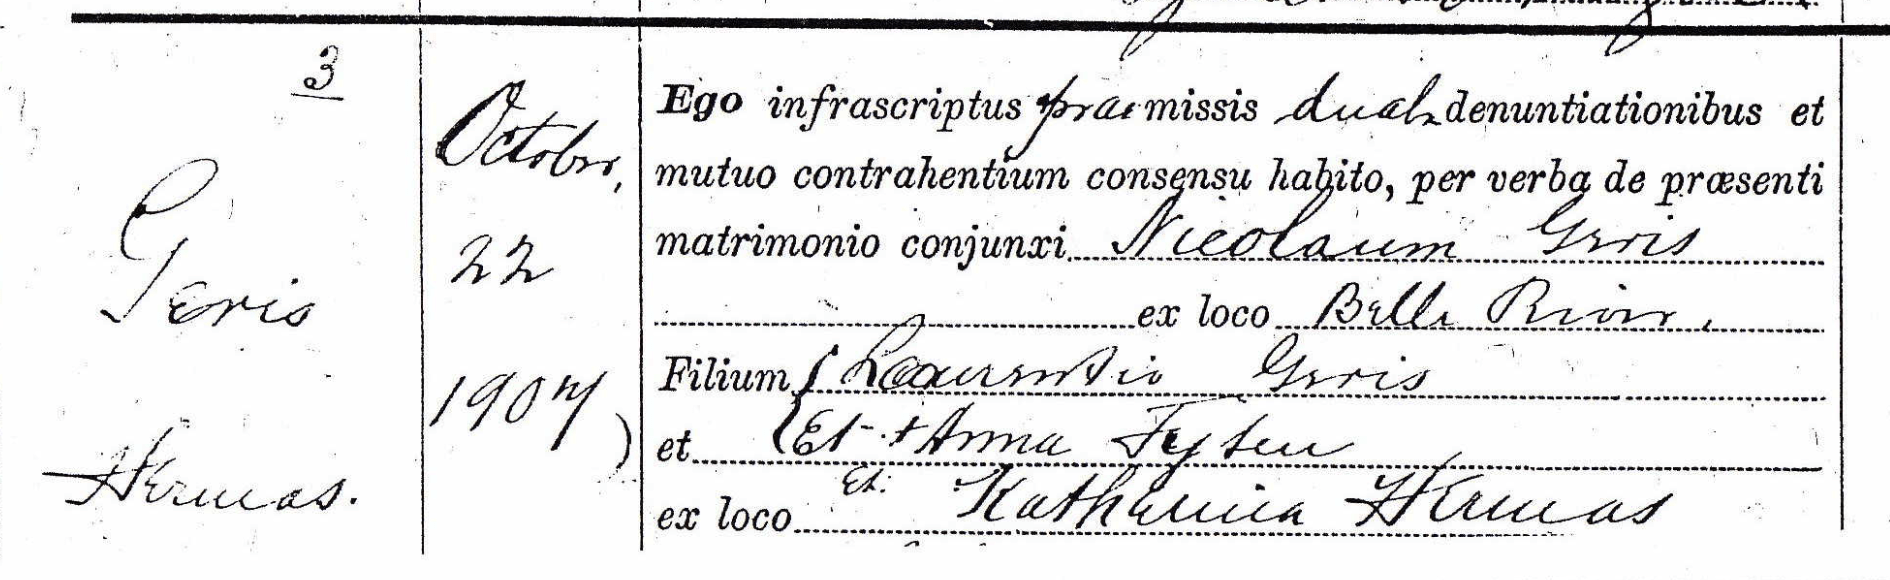 3
October,
22
1907
Geris
Hermas.
Ego infrascriptus praemissis duab denuntiationibus et
mutuo contrahentium consensu habito, per verba de præsenti
matrimonio conjunxi Nicolaum Geris
ex loco Belle River.
Filium Laurentio Geris
et Et + Anna Feyten
ex loco Et. Katharina Hermas